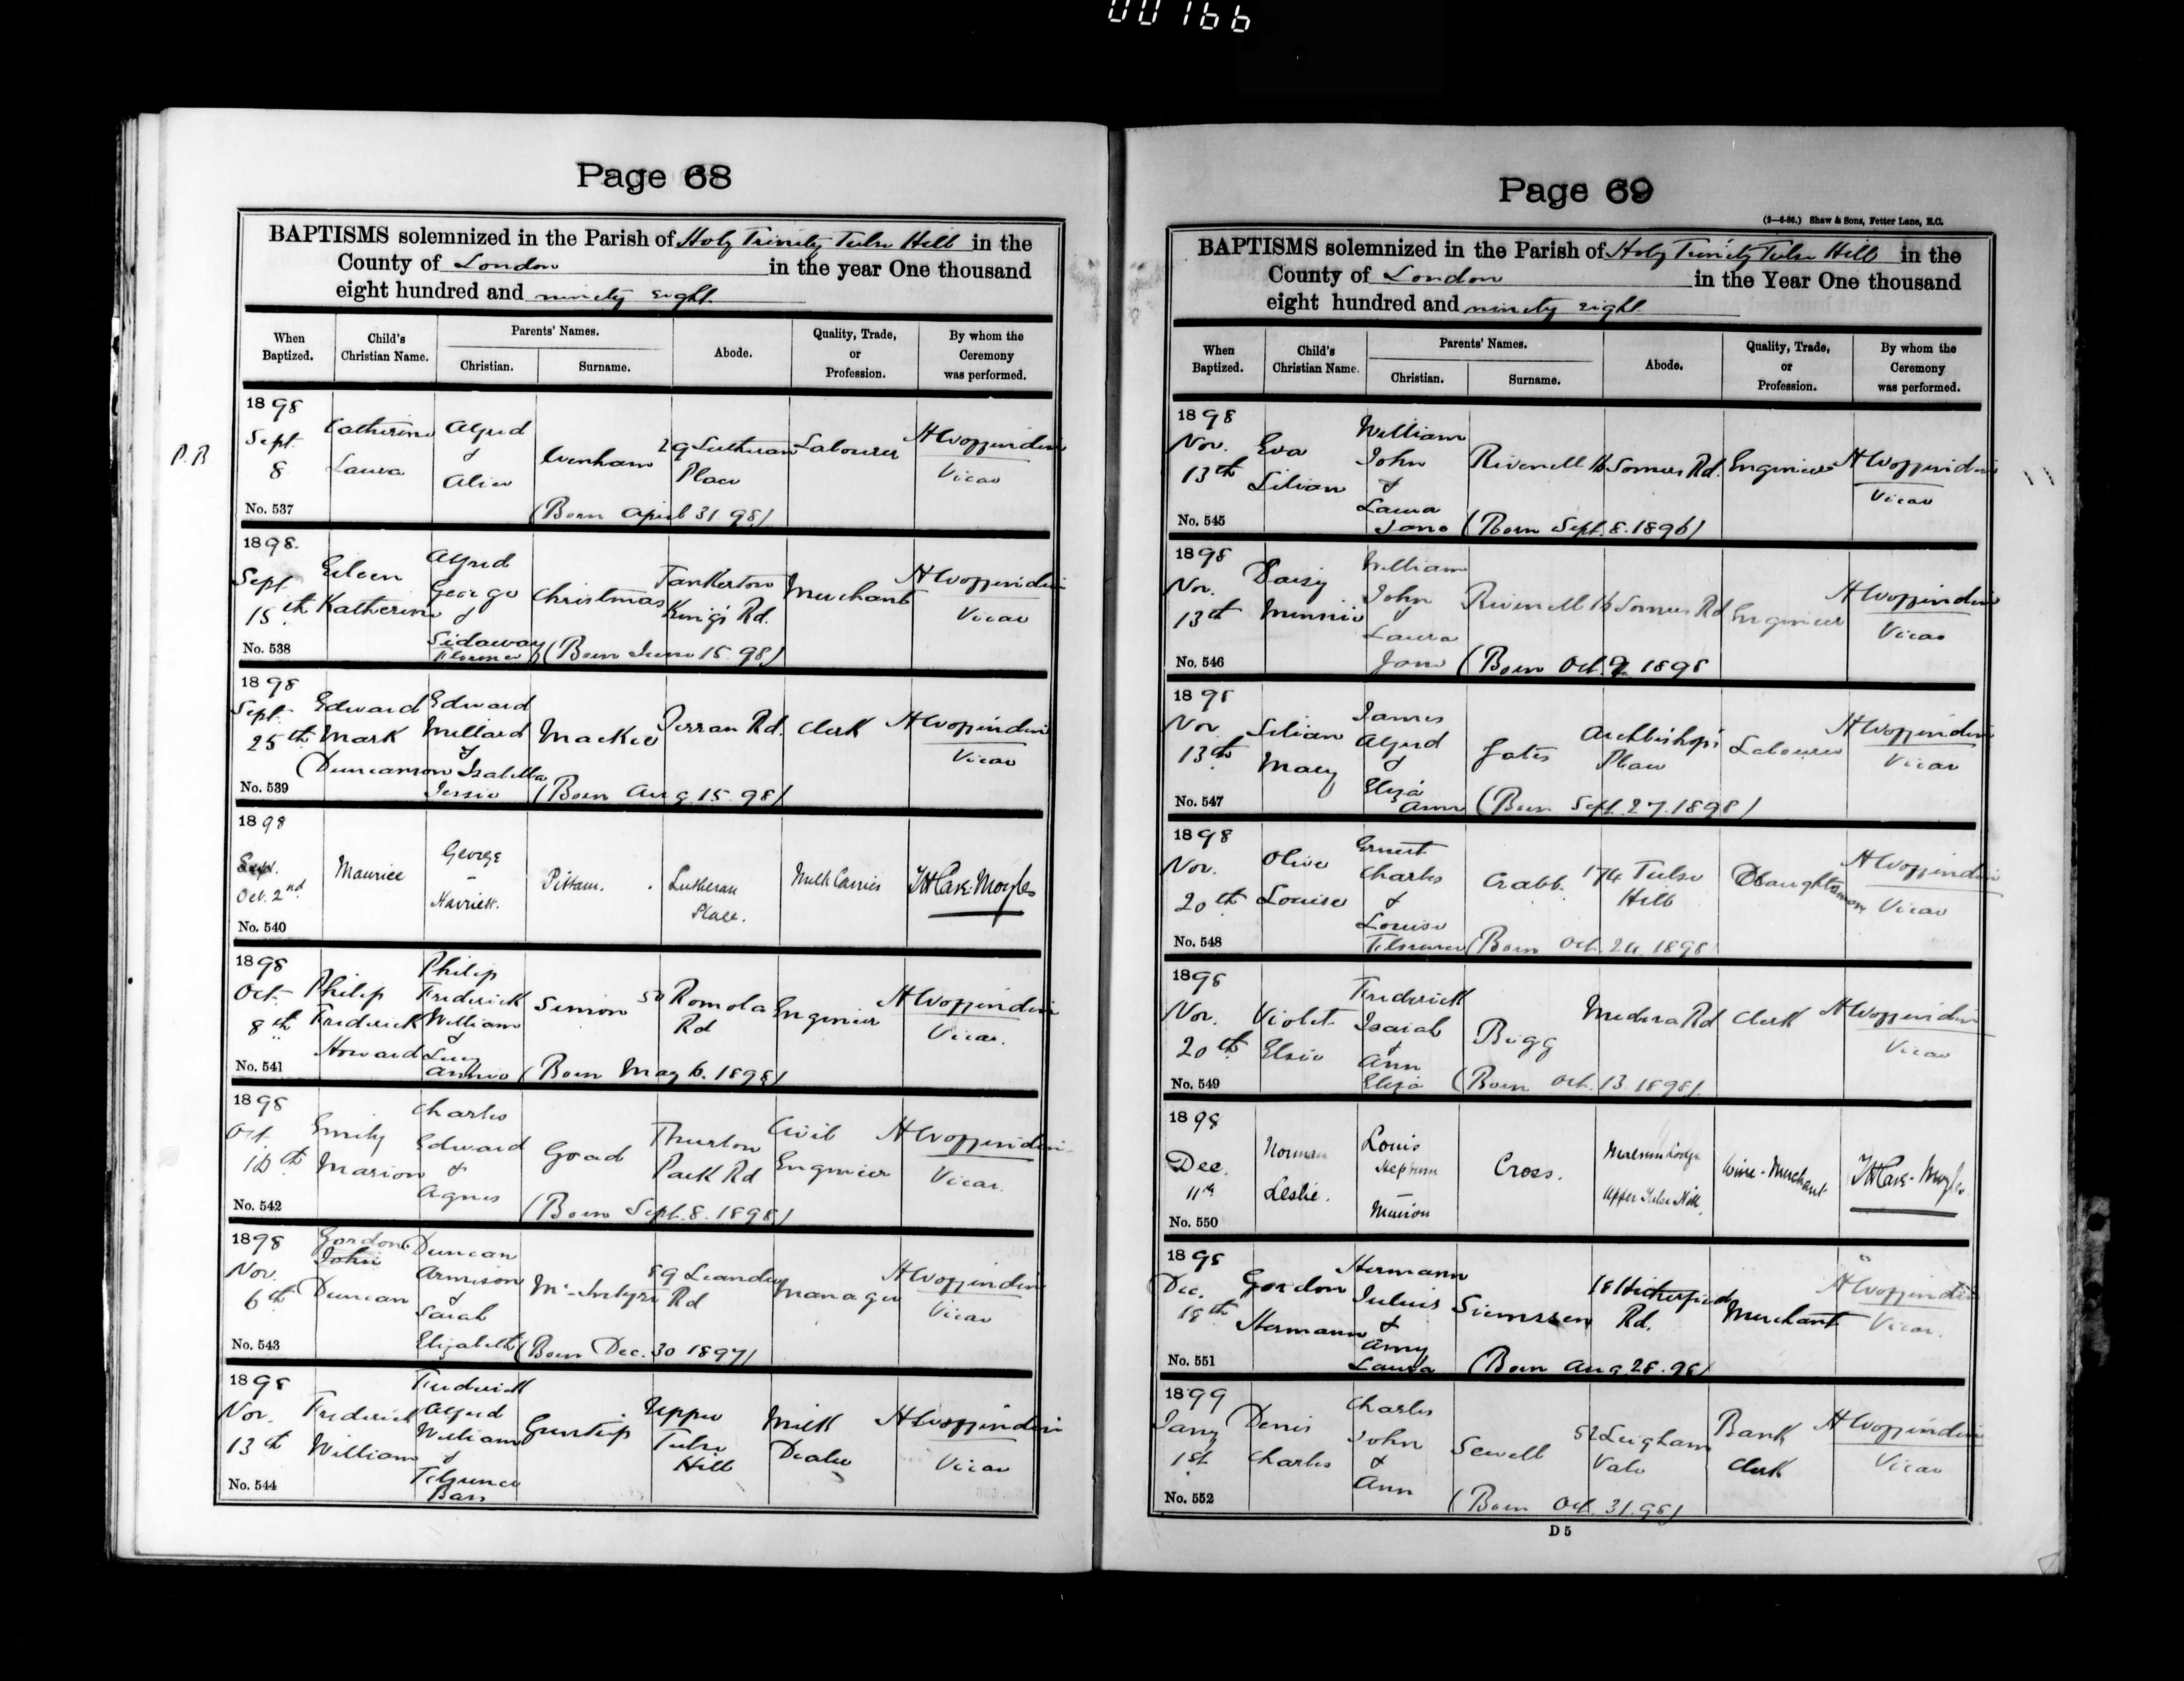 00166
Page 68
BAPTISMS solemnized in the Parish of Holy Trinity Tulse Hill in the
County of London in the year One thousand
eight hundred and ninety eight
When Baptized.
Child's Christian Name.
Parents' Names.
Christian.
Surname.
Abode.
Quality, Trade, or Profession.
By whom the Ceremony was performed.
P.B
1898 Sept. 8
Catherine Laura
Alfred & Alice
29 Lutheran Place
Labourer
Vicar
No. 537
(Born April 31 98)
1898. Sept 15th
Eileen Katherine
Alfred George & Sidaway Florence
Christmas
Tankerton King's Rd.
Merchant
Vicar
No. 538
(Born June 15. 98)
1898 Sept. 25th
Edward Mark (Duncanson
Edward Millard & Isabella Jessie
Mackie
Perran Rd.
Clerk
Vicar
No. 539
(Born Aug 15 98)
1898
Oct. 2nd
Maurice
George - Harriett.
Pittam.
Lutheran Place.
Milk Carrier
No. 540
1898 Oct. 8th
Philip Frederick Howard
Philip Frederick William & Lucy Annie
Simon
50 Romola Rd
Engineer
Vicar.
No. 541
(Born May 6. 1898)
1898 Oct. 16th
Emily Marion
Charles Edward & Agnes
Goad
Thurlow Park Rd
Civil Engineer
Vicar.
No. 542
(Born Sept. 8. 1898)
1898 Nov. 6th
Gordon John Duncan
Duncan Armison & Sarah Elizabeth
McIntyre
89 Leander Rd
Manager
Vicar
No. 543
(Born Dec. 30 1897)
1898 Nov. 13th
Frederick William
Frederick Alfred William & Florence
Gunstrip
Upper Tulse Hill
Milk Dealer
Vicar
No. 544
Page 69
(2—6-86.) Shaw & Sons, Fetter Lane, E.C.
BAPTISMS solemnized in the Parish of Holy Trinity Tulse Hill in the
County of London in the Year One thousand
eight hundred and ninety eight
When Baptized.
Child's Christian Name.
Parents' Names.
Christian.
Surname.
Abode.
Quality, Trade, or Profession.
By whom the Ceremony was performed.
1898 Nov. 13th
Eva Lilian
William John & Laura Jane
Rivenell
16 Somers Rd.
Engineer
Vicar
No. 545
(Born Sept. 8. 1896)
1898 Nov. 13th
Daisy Minnie
William John & Laura Jane
Rivenell
16 Somers Rd
Engineer
Vicar
No. 546
(Born Oct. 9 1898
1898 Nov 13th
Lilian Mary
James Alfred & Eliza Ann
Gates
Archbishop's Place
Labourer
Vicar
No. 547
(Born Sept. 27. 1898)
1898 Nov. 20th
Olive Louise
Ernest Charles & Louise Florence
Crabb.
174 Tulse Hill
Draughtsman
Vicar
No. 548
(Born Oct. 24. 1898
1898 Nov. 20th
Violet Elsie
Frederick Isaiah & Ann Eliza
Bigg
Medora Rd
Clerk
Vicar
No. 549
(Born Oct. 13 1898).
1898
Dec. 11th
Norman Leslie.
Louis Hepburn - Marion
Cross.
Lodge Upper Tulse Hill.
Wine-Merchant
No. 550
1898 Dec. 18th
Gordon Hermann
Hermann Julius & Amy Laura
Siemssen
18 Hitherfield Rd.
Merchant
Vicar.
No. 551
(Born Aug. 28. 98)
1899 Jany 1st
Denis Charles
Charles John & Ann
Sewell
52 Leigham Vale
Bank Clerk
Vicar
No. 552
(Born Oct. 31. 98)
D 5